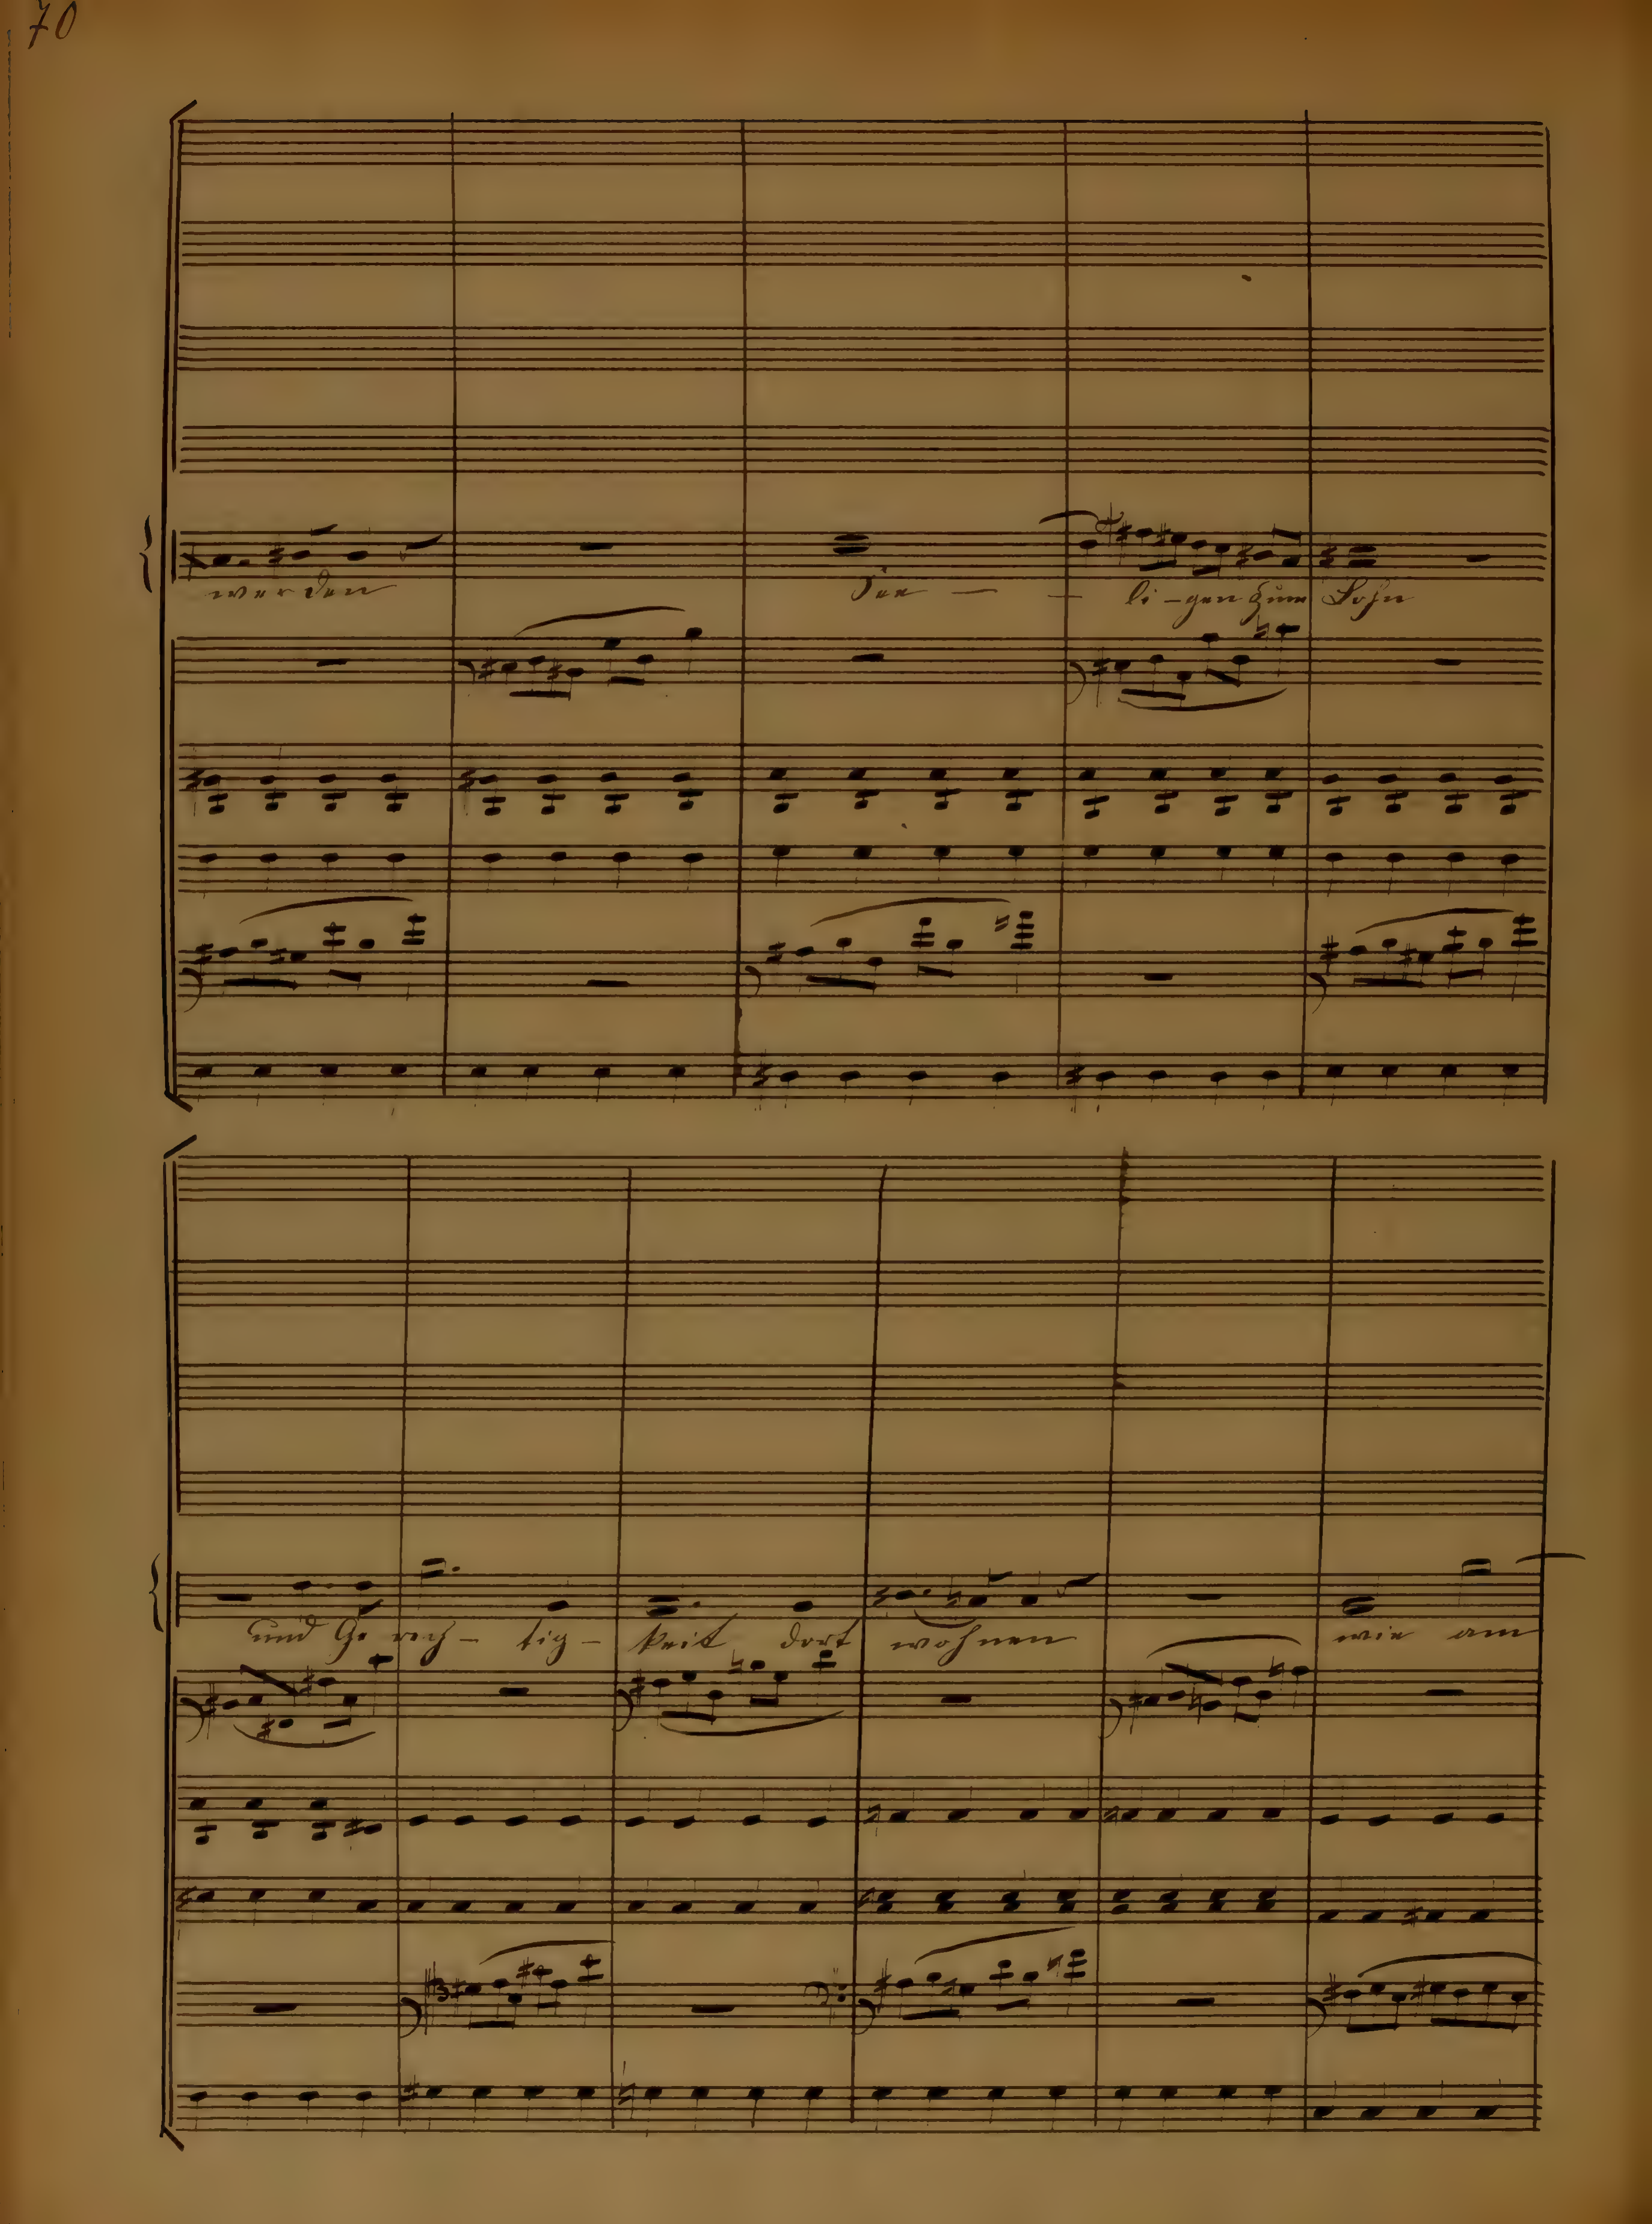 70
werden See — — li-gen zum Lohn
und Ge rech- tig- keit dort wohnen wie am